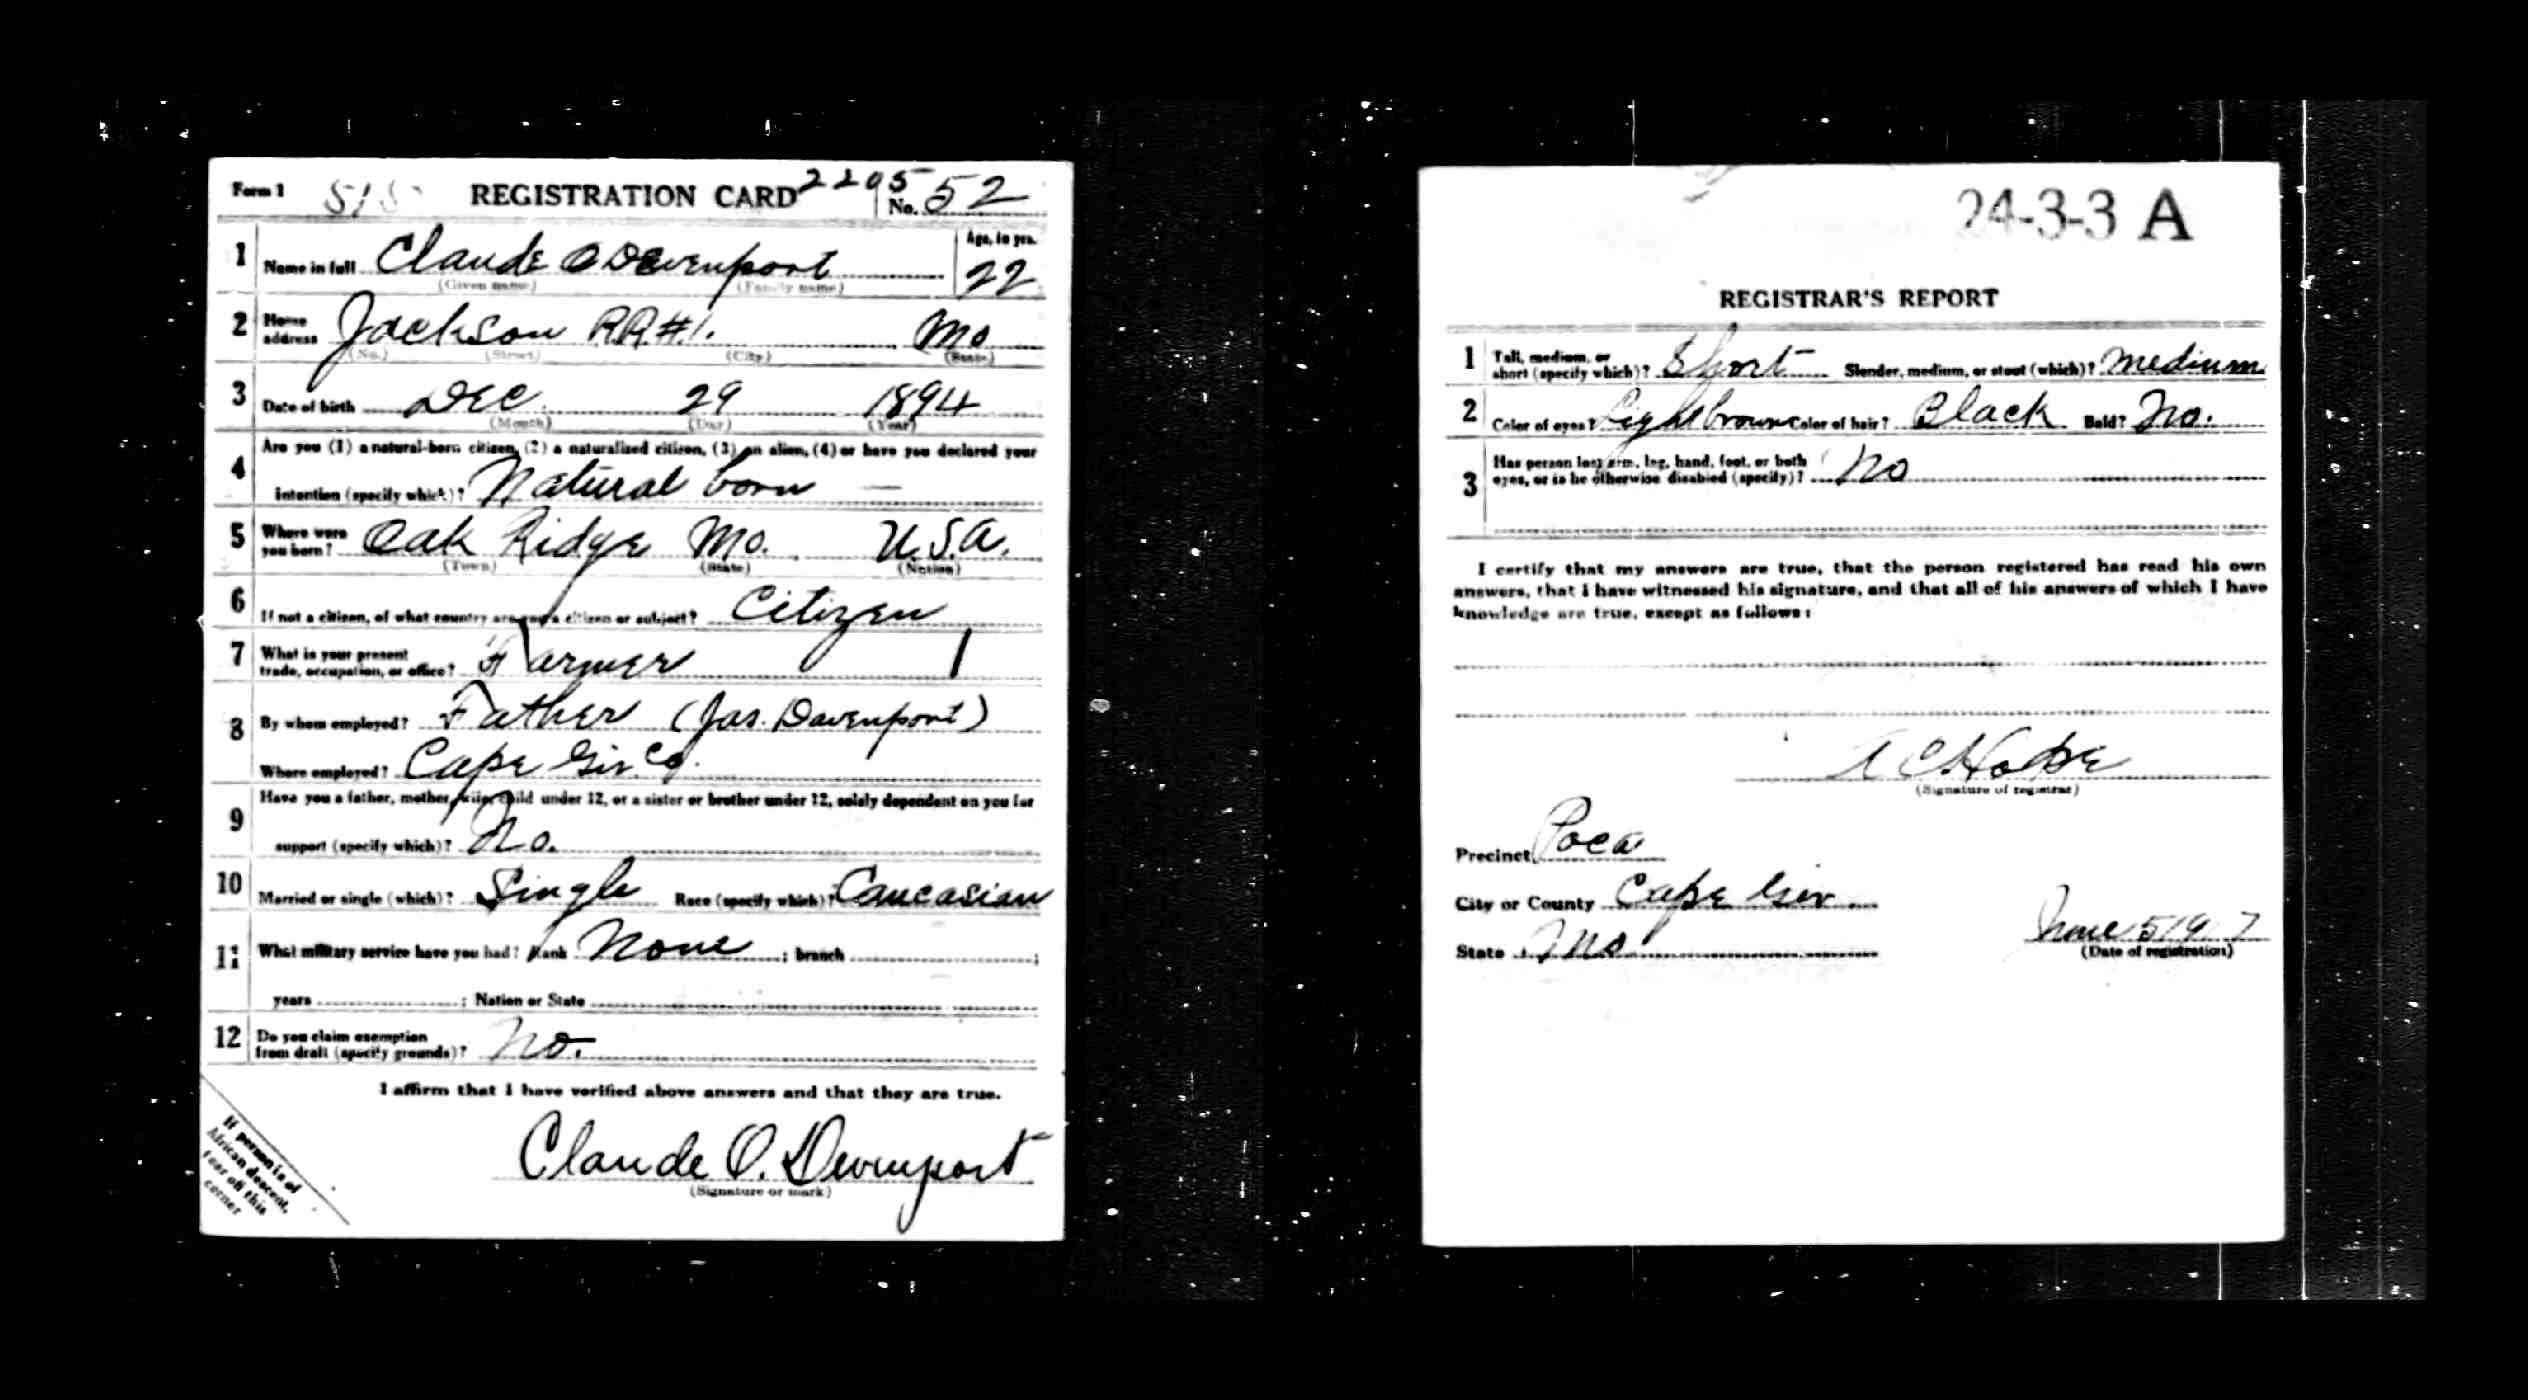 Form 1 REGISTRATION CARD 2205 No. 52
1 Name in full Claude O Davenport Age, in yrs. 22
(Given name) (Family name)
2 Home address Jackson RR#1. Mo
(No.) (Street) (City) (State)
3 Date of birth Dec. 29 1894
(Month) (Day) (Year)
4 Are you (1) a natural-born citizen, (2) a naturalized citizen, (3) an alien, (4) or have you declared your
intention (specify which)? Natural born —
5 Where were you born? Oak Ridge Mo. U.S.A.
(Town) (State) (Nation)
6 If not a citizen, of what country are you a citizen or subject? Citizen
7 What is your present trade, occupation, or office? Farmer 1
8 By whom employed? Father (Jas. Davenport)
Where employed? Cape Gir. Co.
9 Have you a father, mother, wife, child under 12, or a sister or brother under 12, solely dependent on you for
support (specify which)? No.
10 Married or single (which)? Single Race (specify which)? Caucasian
11 What military service have you had? Rank None ; branch ;
years ; Nation or State
12 Do you claim exemption from draft (specify grounds)? No.
I affirm that I have verified above answers and that they are true.
Claude O. Davenport
(Signature or mark)
If person is of
African descent,
tear off this
corner
24-3-3 A
REGISTRAR'S REPORT
1 Tall, medium, or short (specify which)? Short Slender, medium, or stout (which)? Medium
2 Color of eyes? Light brown Color of hair? Black Bald? No.
3 Has person lost arm, leg, hand, foot, or both eyes, or is he otherwise disabled (specify)? No
I certify that my answers are true, that the person registered has read his own
answers, that I have witnessed his signature, and that all of his answers of which I have
knowledge are true, except as follows:
(Signature of registrar)
Precinct Poca
City or County Cape Gir
State Mo
June 5 1917
(Date of registration)